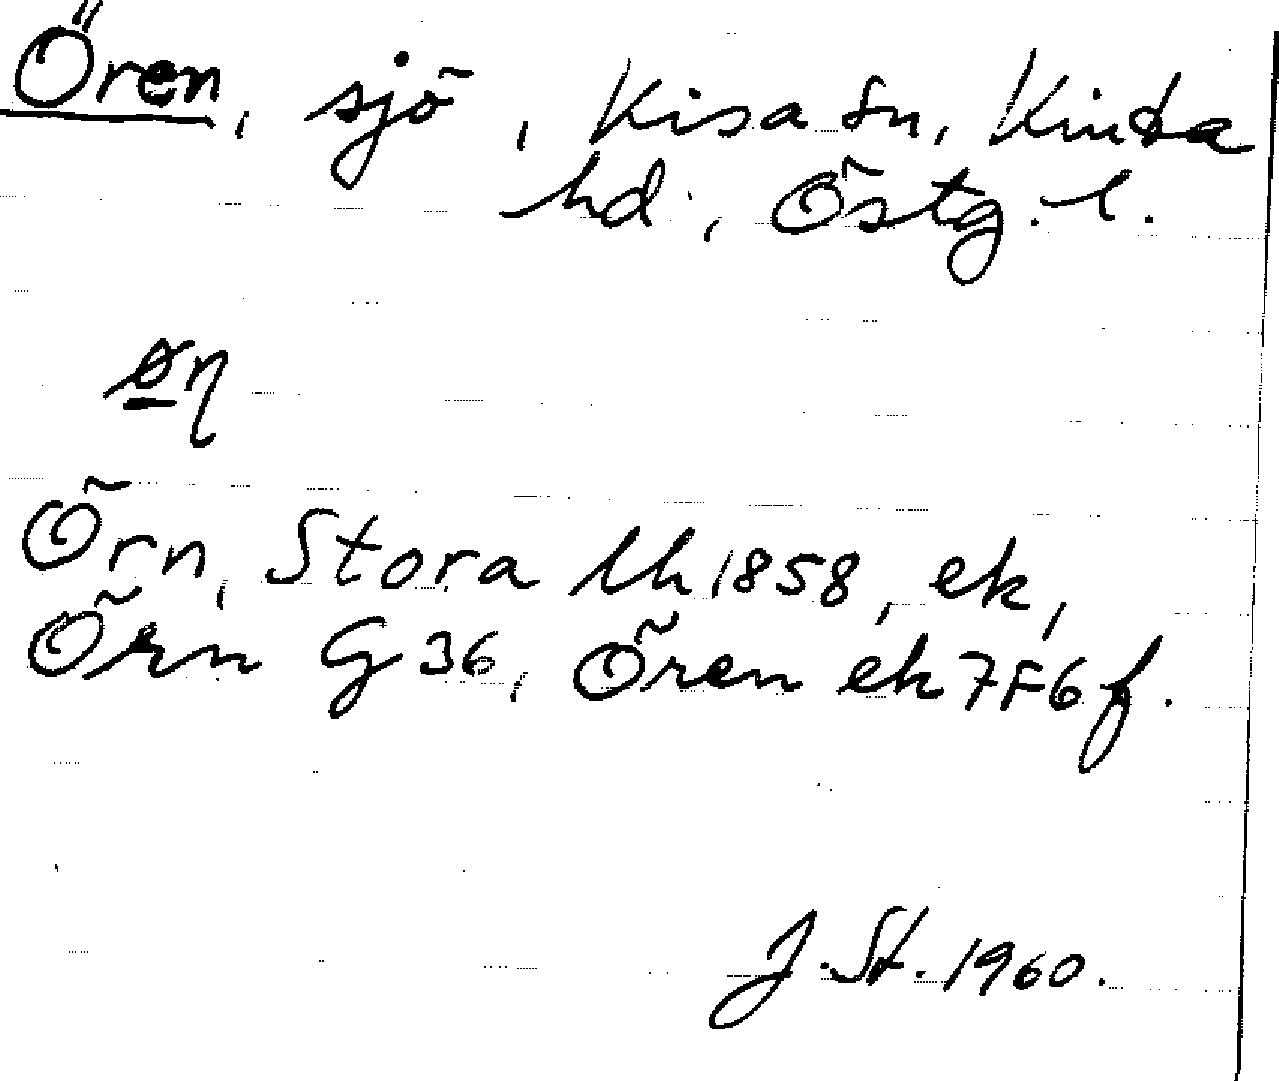 Ören, sjö, Kisa sn, Kinda
hd, Östg. l.
øη
Örn, Stora lh 1858, ek,
Örn G 36, Ören ek 7F6f.
J. St. 1960.